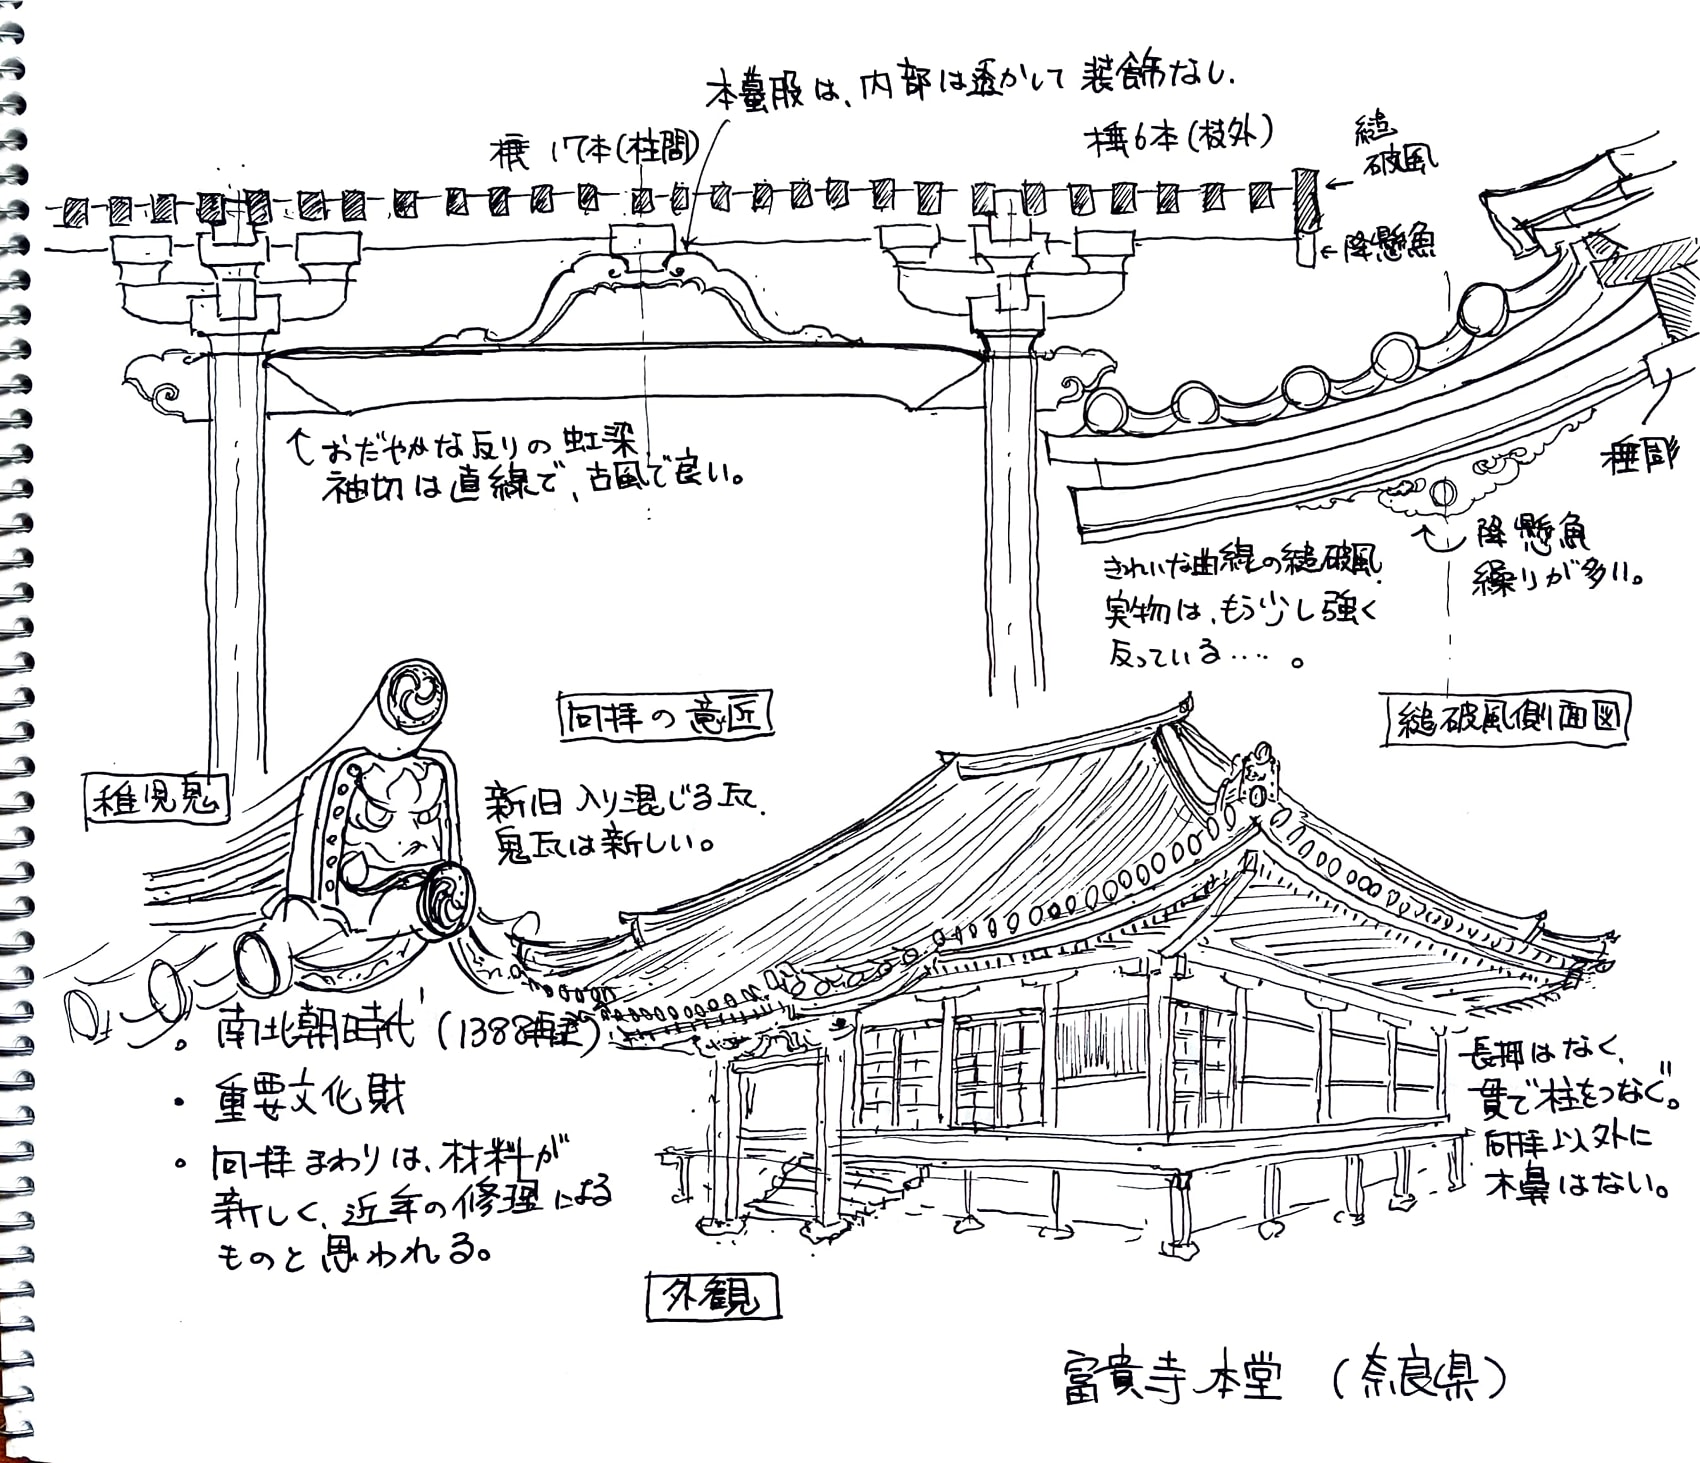 本蟇股は、内部は透かして装飾なし.
棰 17本(柱間)
棰6本(枝外)
縋
破風
降懸魚
おだやかな反りの虹梁
袖切は直線で、古風で良い。
棰彫
降懸魚
繰りが多い。
きれいな曲線の縋破風.
実物は、もう少し強く
反っている‥‥。
向拝の意匠
縋破風側面図
稚児鬼
新旧入り混じる瓦.
鬼瓦は新しい。
・南北朝時代 (1388再建)
・重要文化財
・向拝まわりは、材料が
新しく、近年の修理による
ものと思われる。
長押はなく、
貫で柱をつなぐ。
向拝以外に
木鼻はない。
外観
富貴寺本堂 (奈良県)